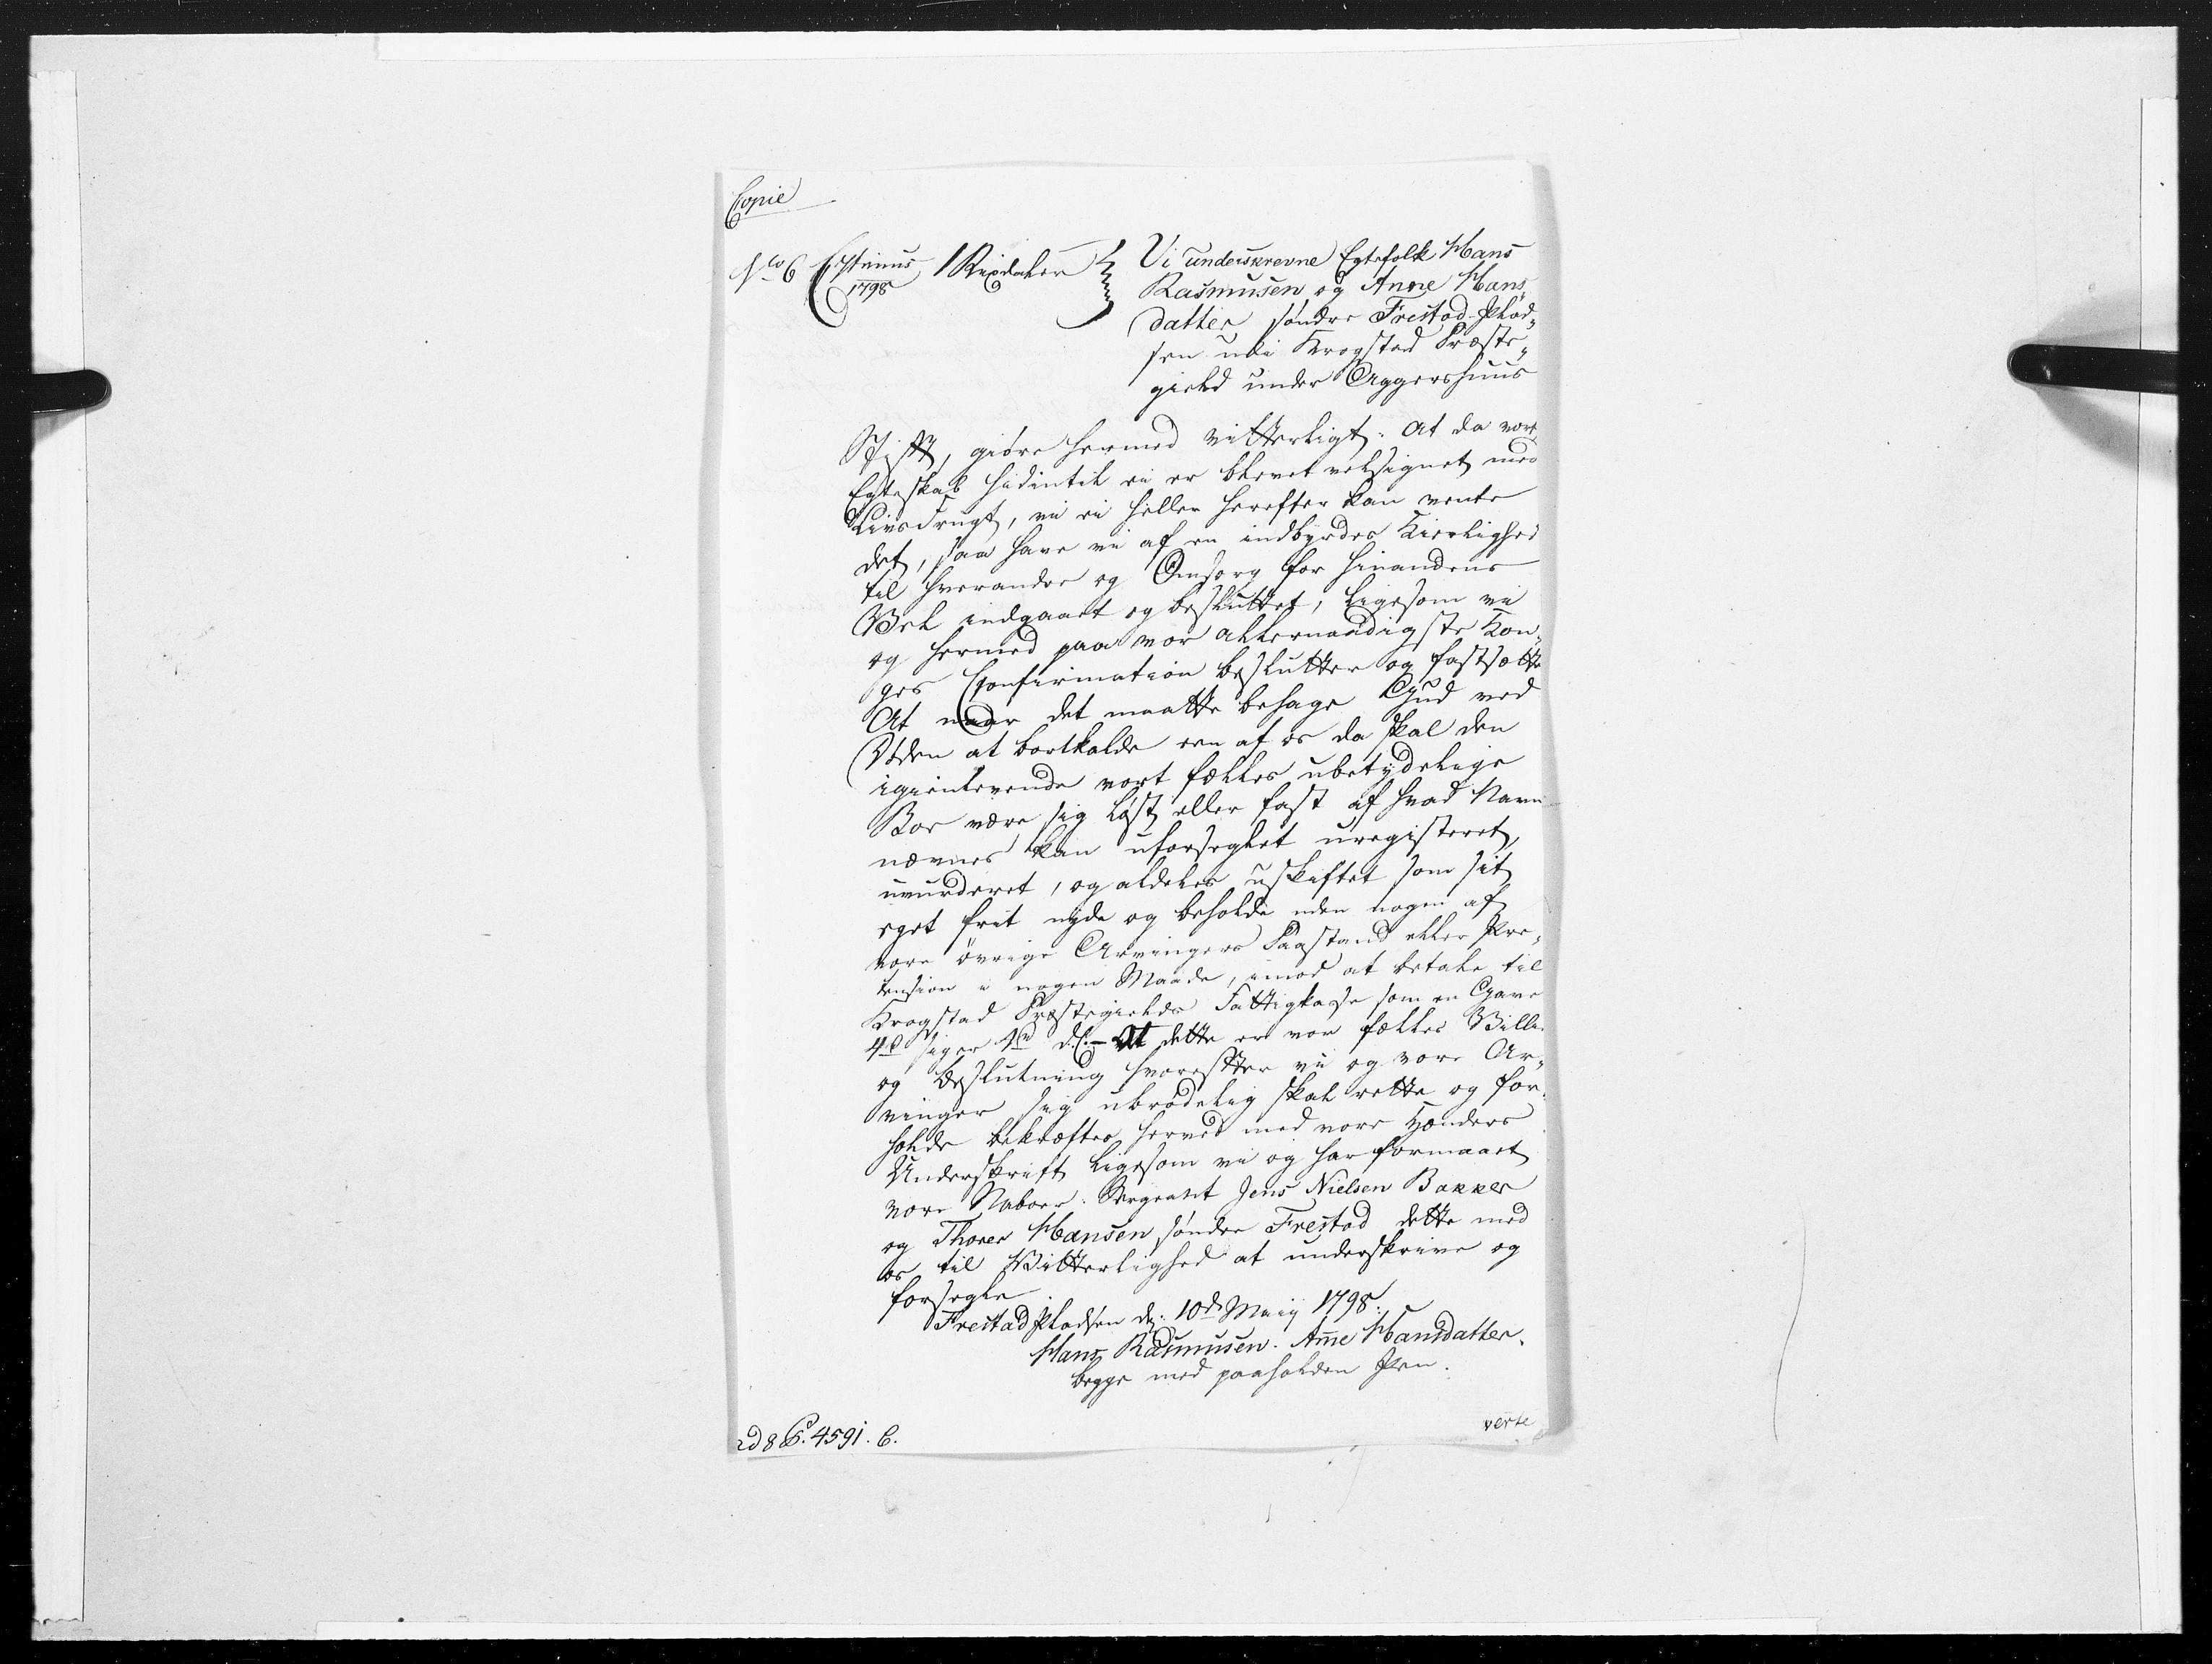 Copie
No 6 C 7timus 1798 1 Rixdaler
Vi underskrevne Egtefolk Hans
Rasmusen og Anne Hans„
datter søndre Frestad Plad„
sen udi Krogstad Præste„
gield under Aggershuus
Stift, giøre hermed vitterligt: At da vort
Egteskab hidintil ei er blevet velsignet med
Livsfrugt, vi ei heller herefter kan vente
det, saa have vi af en indbyrdes Kierlighed
til hverandre og Omsorg for hinandens
Vel indgaaet og besluttet, ligesom vi
og hermed paa vor allernaadigste Kon„
ges Confirmation beslutter og fastsætte
At naar det maatte behage Gud ved
Døden at bortkalde een af os da skal den
igienlevende vort fælles ubetydelige
Boe være sig løst eller fast af hvad Navn
nævnes kan uforseglet uregisteret,
uvurderet, og aldeles uskiftet som sit
eget frit nyde og beholde uden nogen af
vore øvrige Arvingers Paastand eller Præ„
tension i nogen Maade, imod at betale til
Krogstad Præstegields Fattigkasse som en Gave
siger d.C: – At dette er vor fælles Villie
og Beslutning hvorefter vi og vore Ar„
vinger sig ubrødelig skal rette og for„
holde bekræftes herved med vore Hænders
Underskrift ligesom vi og har formaaet
vore Naboer: Sergeant Jens Nielsen Bakker
og Thorer Hansen søndre Frestad dette med
os til Vitterlighed at underskrive og
forsegle.
Frestad Pladsen d: 10de Maij 1798.
Hans Rasmusen. Anne Hansdatter.
begge med paaholden Pen.
verte
ad 8 B. 4591. C.